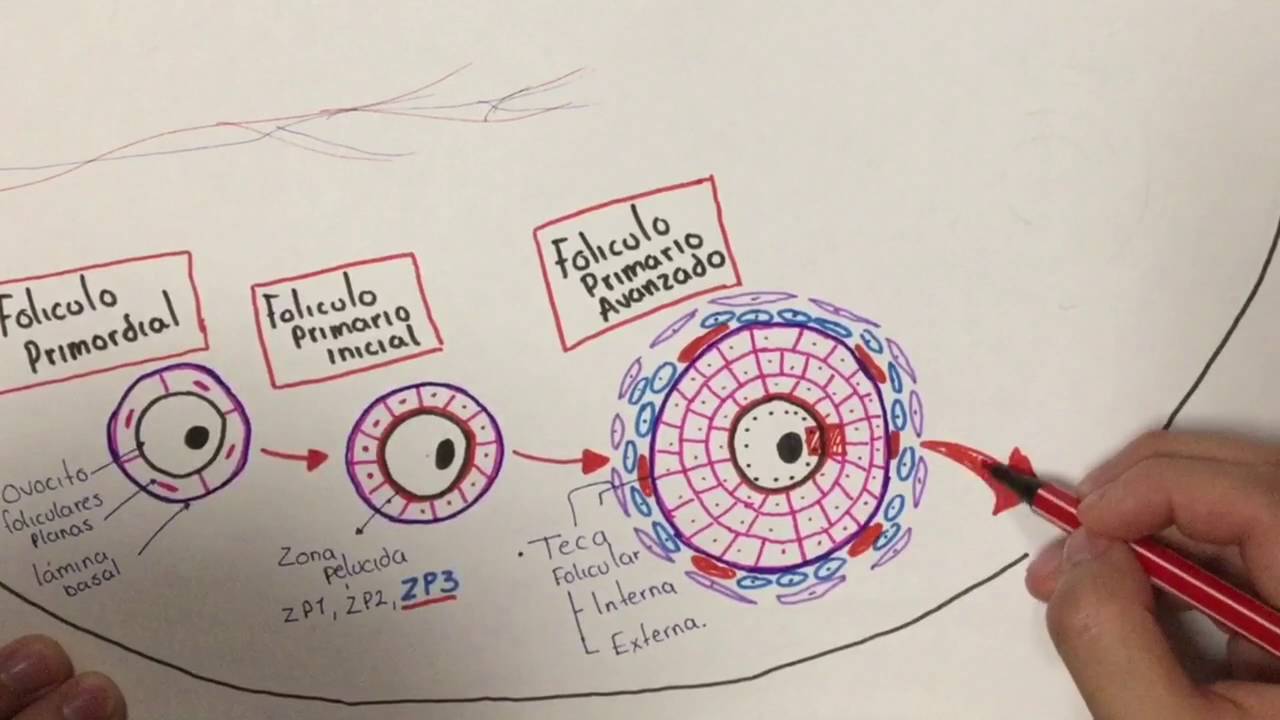 Folículo
Primordial
Folículo
Primario
inicial
Folículo
Primario
Avanzado
Ovocito
foliculares
planas
lámina
basal
Zona
pelucida
ZP1, ZP2, ZP3
• Teca
Folicular
Interna
Externa.